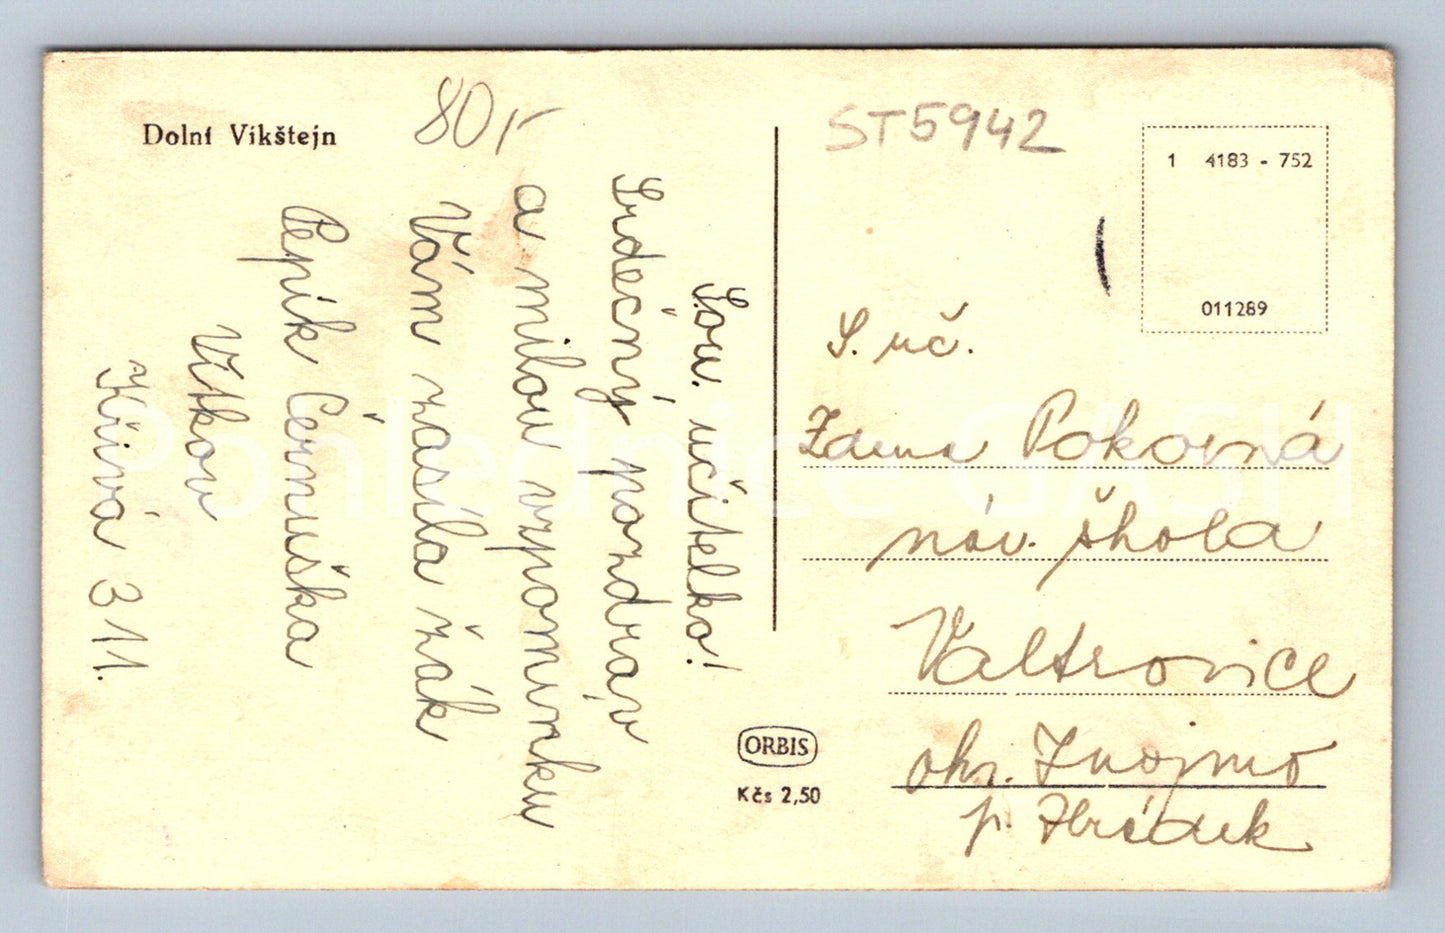 Dolní Vikštejn
80,-
Sou. učitelko!
Srdečný pozdrav
a milou vzpomínku
Vám zasílá žák
Pepík Černuška
Vítkov
Křivá 311.
ST5942
1 4183 - 752
011289
S. uč.
Zdena Pokorná
nár. škola
Valtrovice
okr. Znojmo
p. Hrádek
ORBIS
Kčs 2,50
Pohlednice GASH